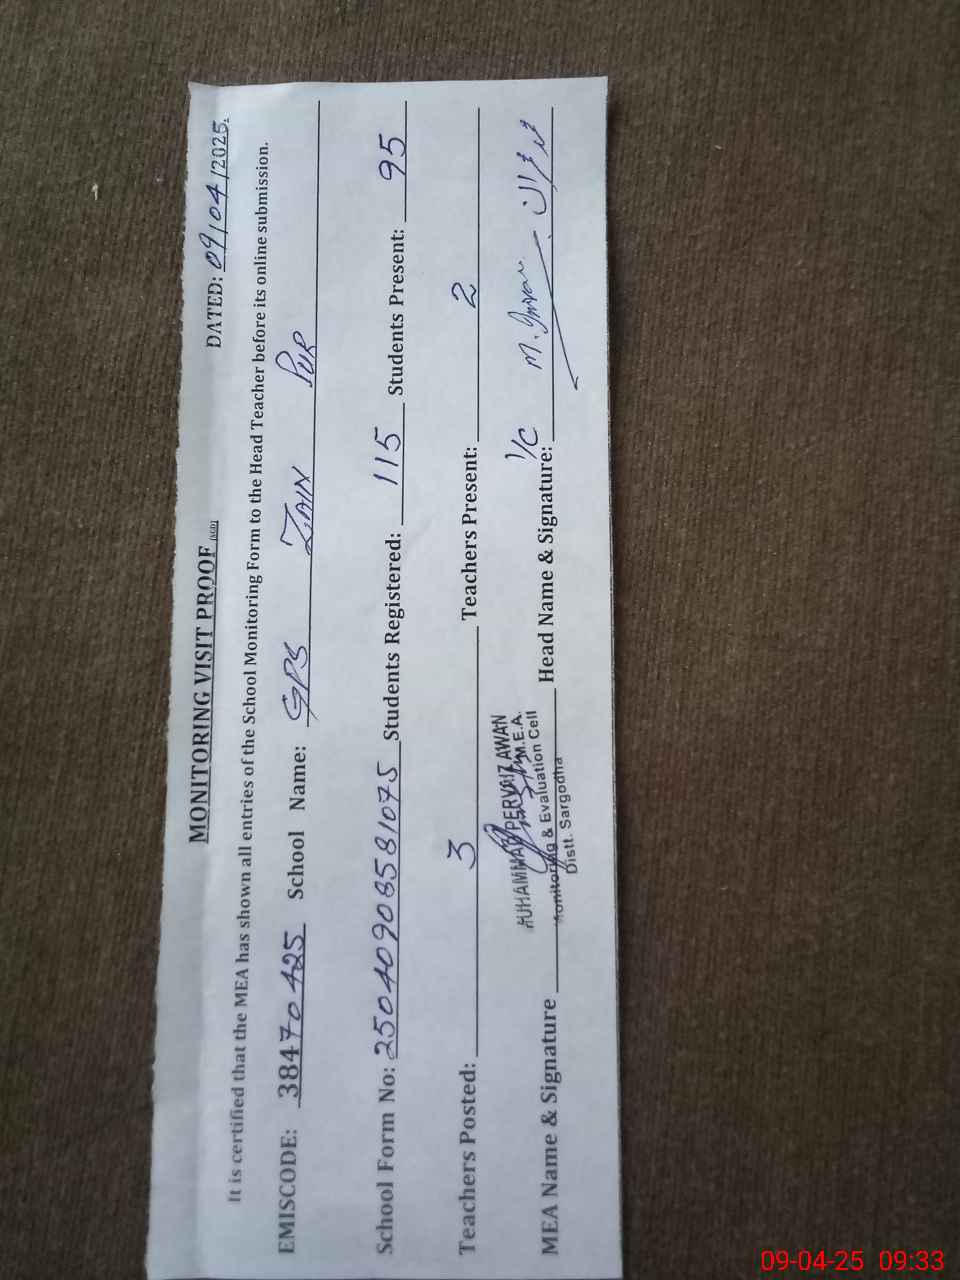 MONITORING VISIT PROOF (SGD)
DATED: 09/04/2025.
It is certified that the MEA has shown all entries of the School Monitoring Form to the Head Teacher before its online submission.
EMISCODE: 38470425 School Name: GPS ZAIN PUR
School Form No: 2504090858 1075 Students Registered: 115 Students Present: 95
Teachers Posted: 3 Teachers Present: 2
MUHAMMAD PERVAIZ AWAN
M.E.A.
Monitoring & Evaluation Cell
Distt. Sargodha
MEA Name & Signature Head Name & Signature: I/C M. Imran
09-04-25 09:33